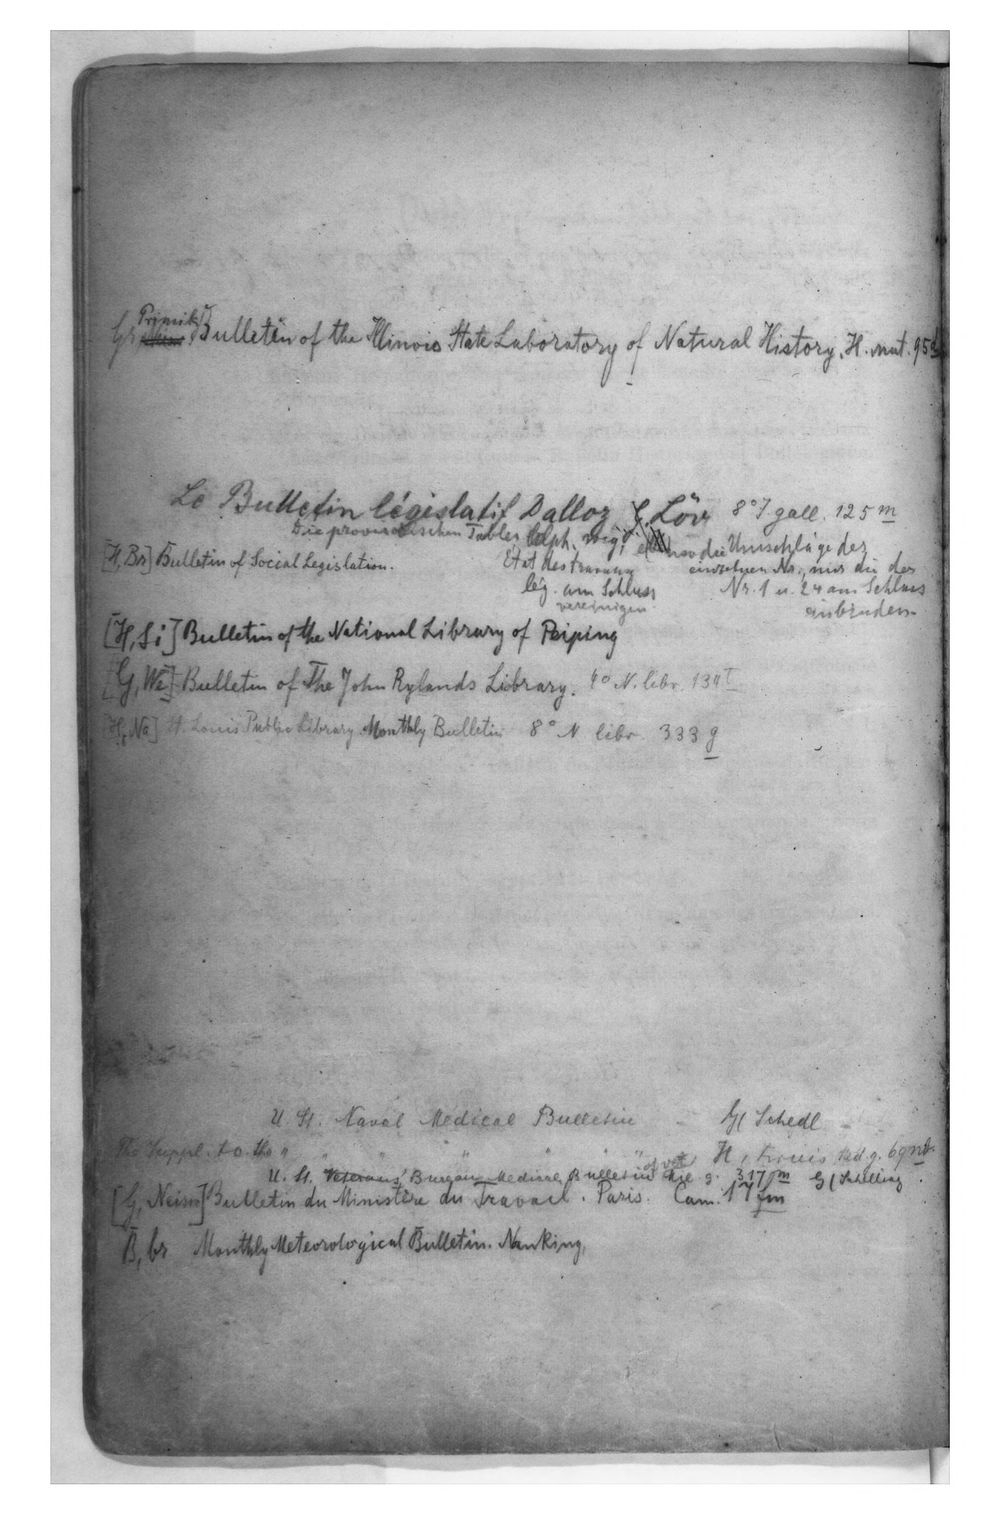 Primik
Gr Bulletin of the Illinois State Laboratory of Natural History, H. nat. 95
Le Bulletin législatif Dalloz G, Löw 8° J. gall. 125 m
Die provisorischen Tables alph. weg; die Umschläge der
[H, Br] Bulletin of Social Legislation. Etat des travaux einzelnen Nr., nur die der
lég. am Schluss Nr. 1 u. 24 am Schluss
vereinigen einbinden
[H, Si] Bulletin of the National Library of Peiping
[G, We] Bulletin of The John Rylands Library. 4° N. libr. 134 t
[H, Na] St. Louis Public Library Monthly Bulletin 8° N libr. 333 g
U. St. Naval Medical Bulletin G/ Schedl
The Suppl. to the " " " " H, Med. g. 69
U. St. Veterans' Bureau Medical Bulletin g. 317 m G/ Schilling
[G, Neim] Bulletin du Ministère du Travail. Paris. Cam. 17 fm
B, br Monthly Meteorological Bulletin. Nanking,